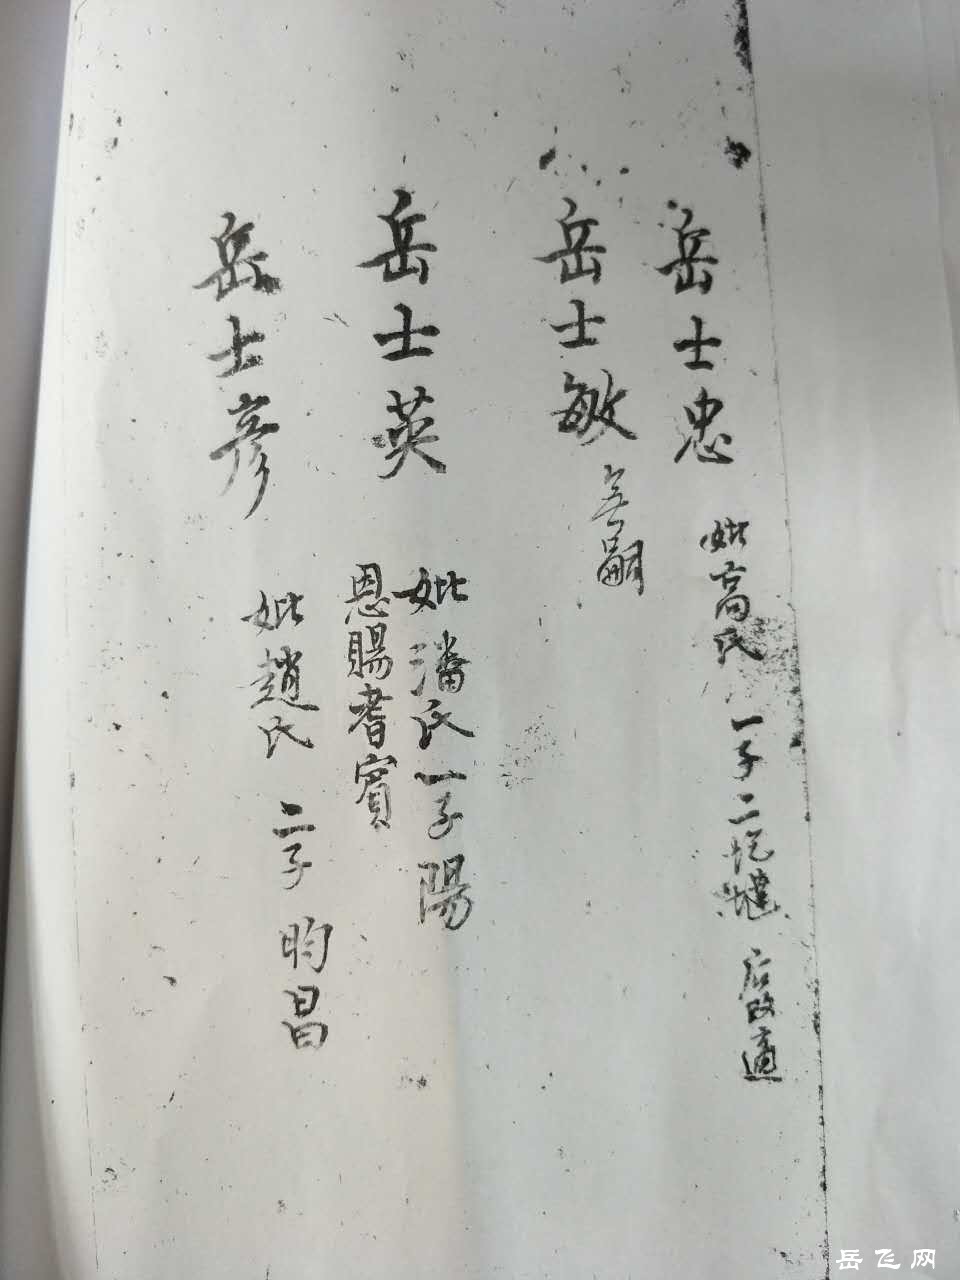 岳士忠 妣高氏 一子二圪墶 后改適
岳士敏 無嗣
岳士英 妣潘氏 一子陽
恩賜耆賓
岳士彥 妣趙氏 二子 昀昌
岳飞网